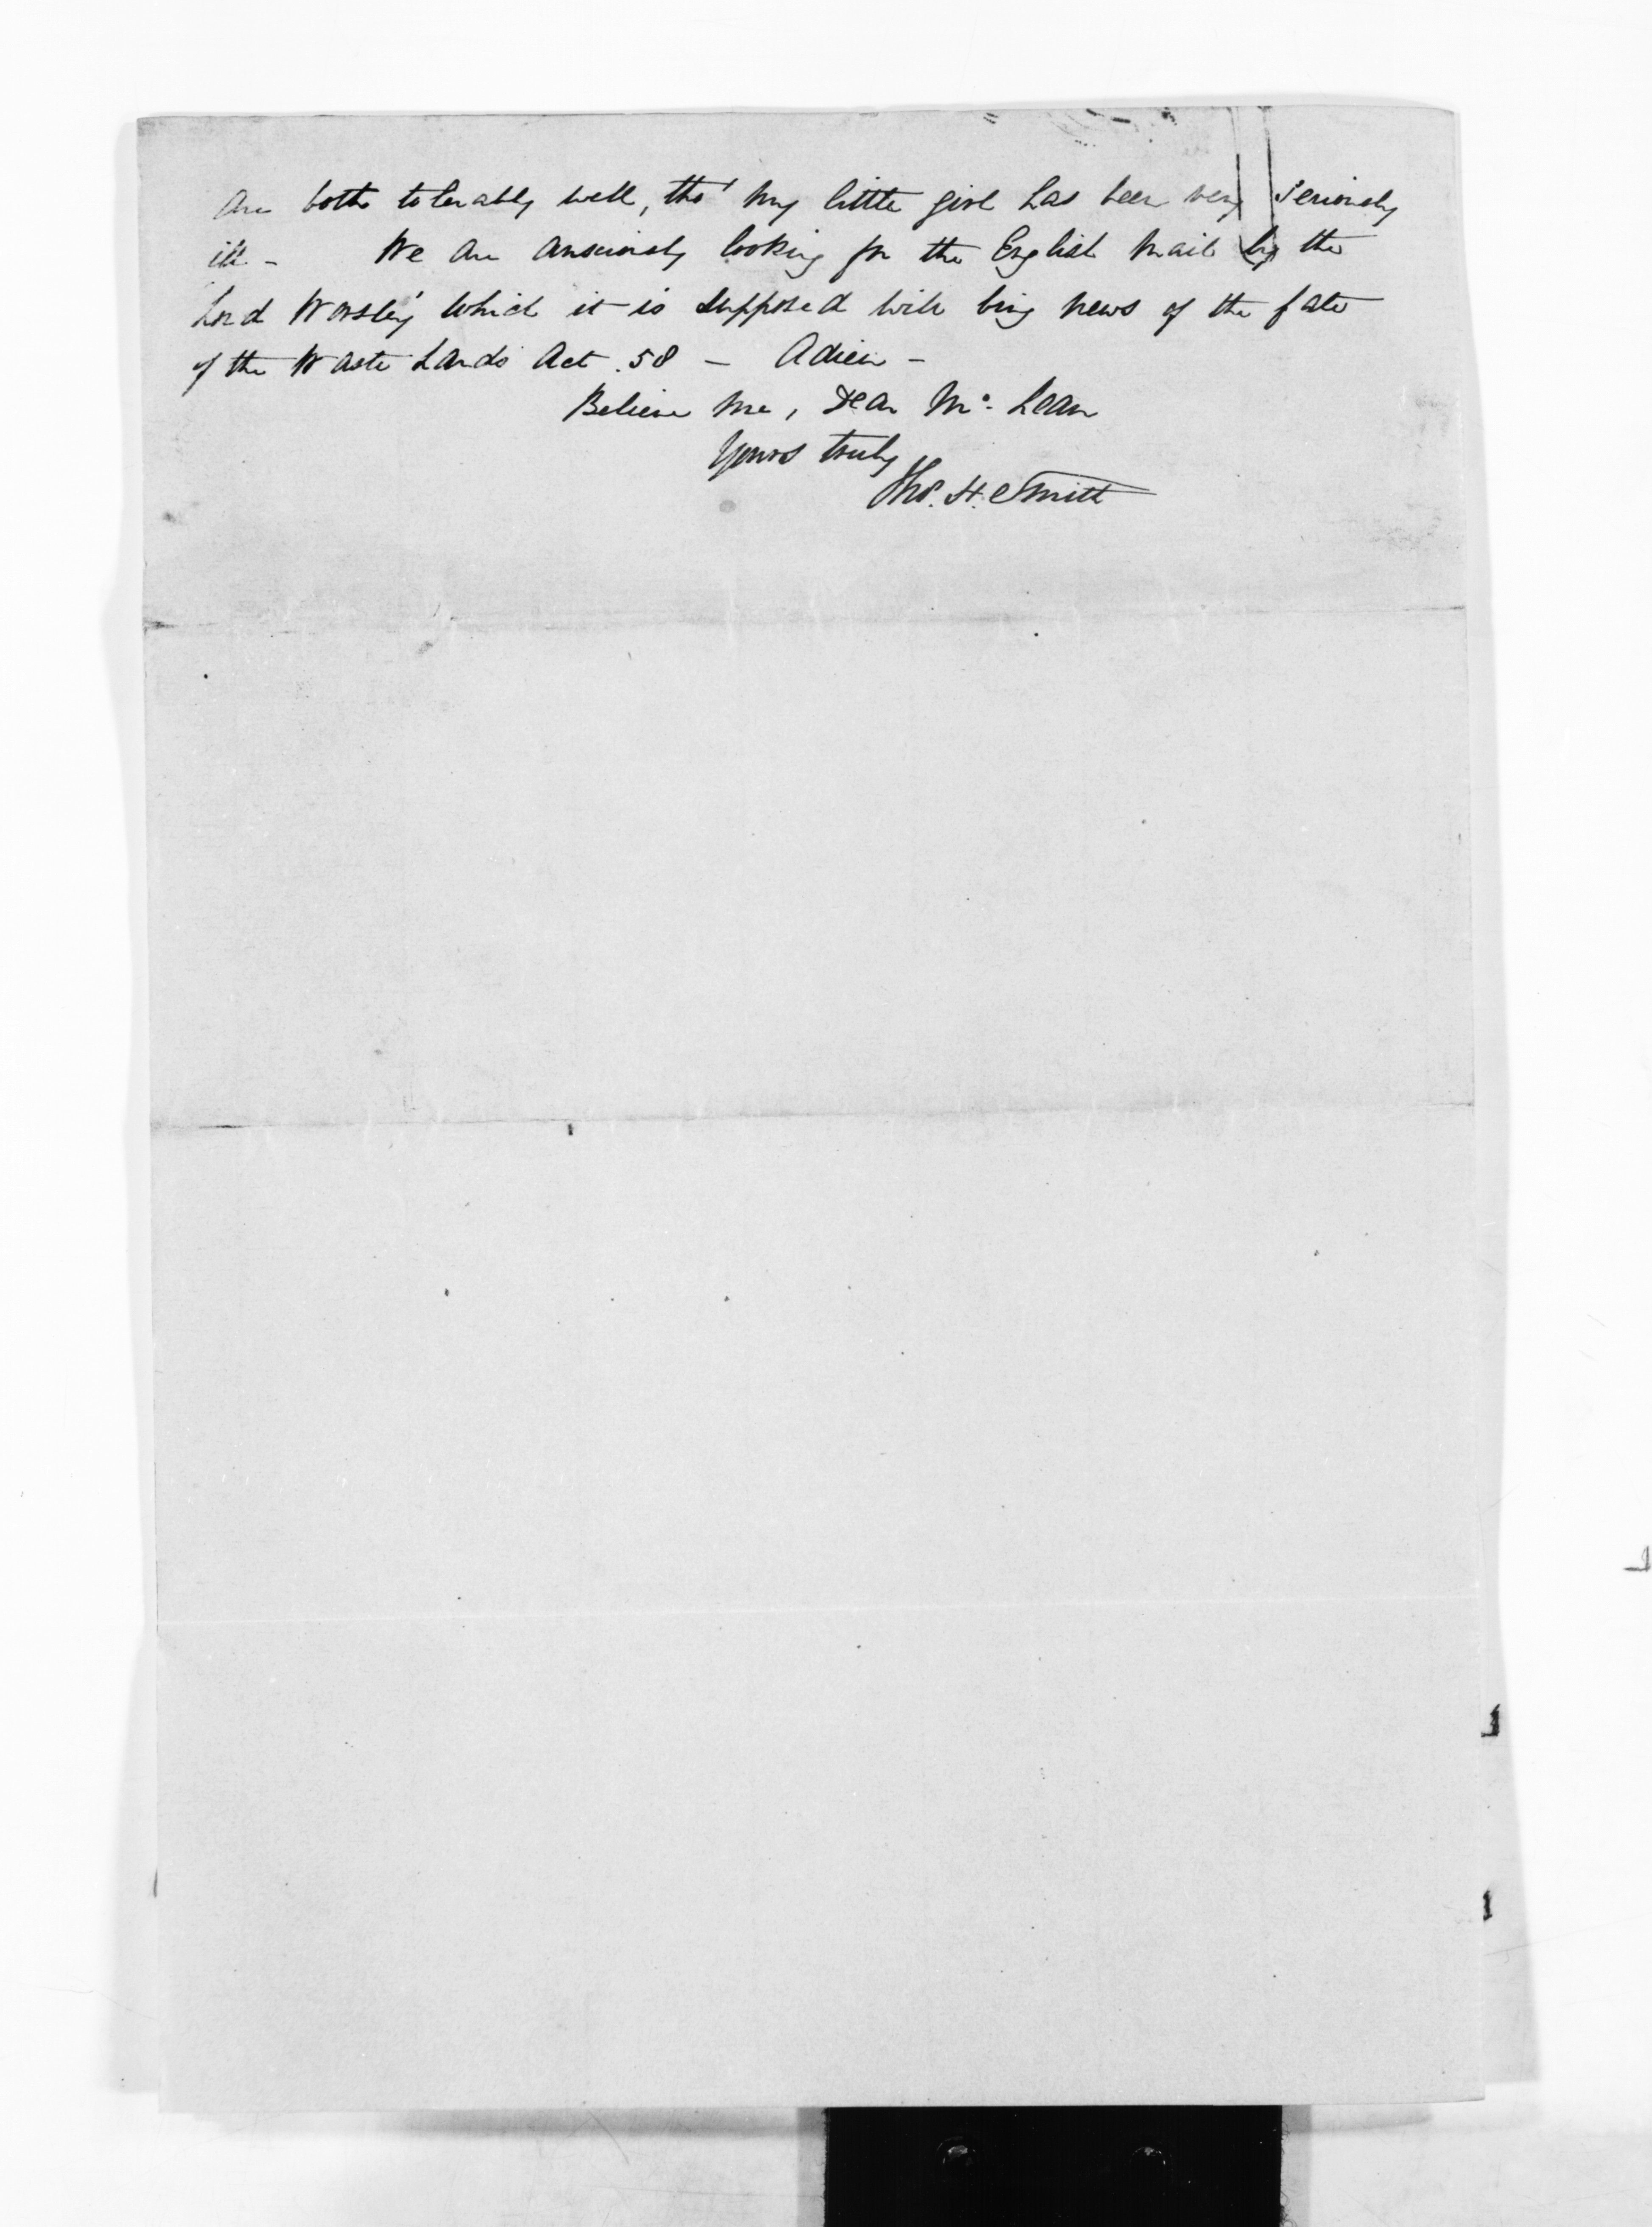 are both tolerably well, tho' my little girl has been very seriously
ill - We are anxiously looking for the English mail by the
Lord Worsley which it is supposed will bring news of the fate
of the Waste Lands Act .58 - Adieu -
Believe me, Dear Mc. Lean
Yours truly
Thos. H. Smith